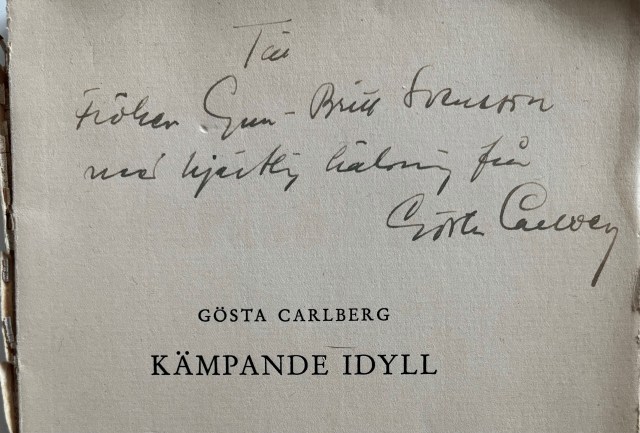 Till
Fröken Gun-Britt Svensson
med hjärtlig hälsning från
Gösta Carlberg
GÖSTA CARLBERG
KÄMPANDE IDYLL